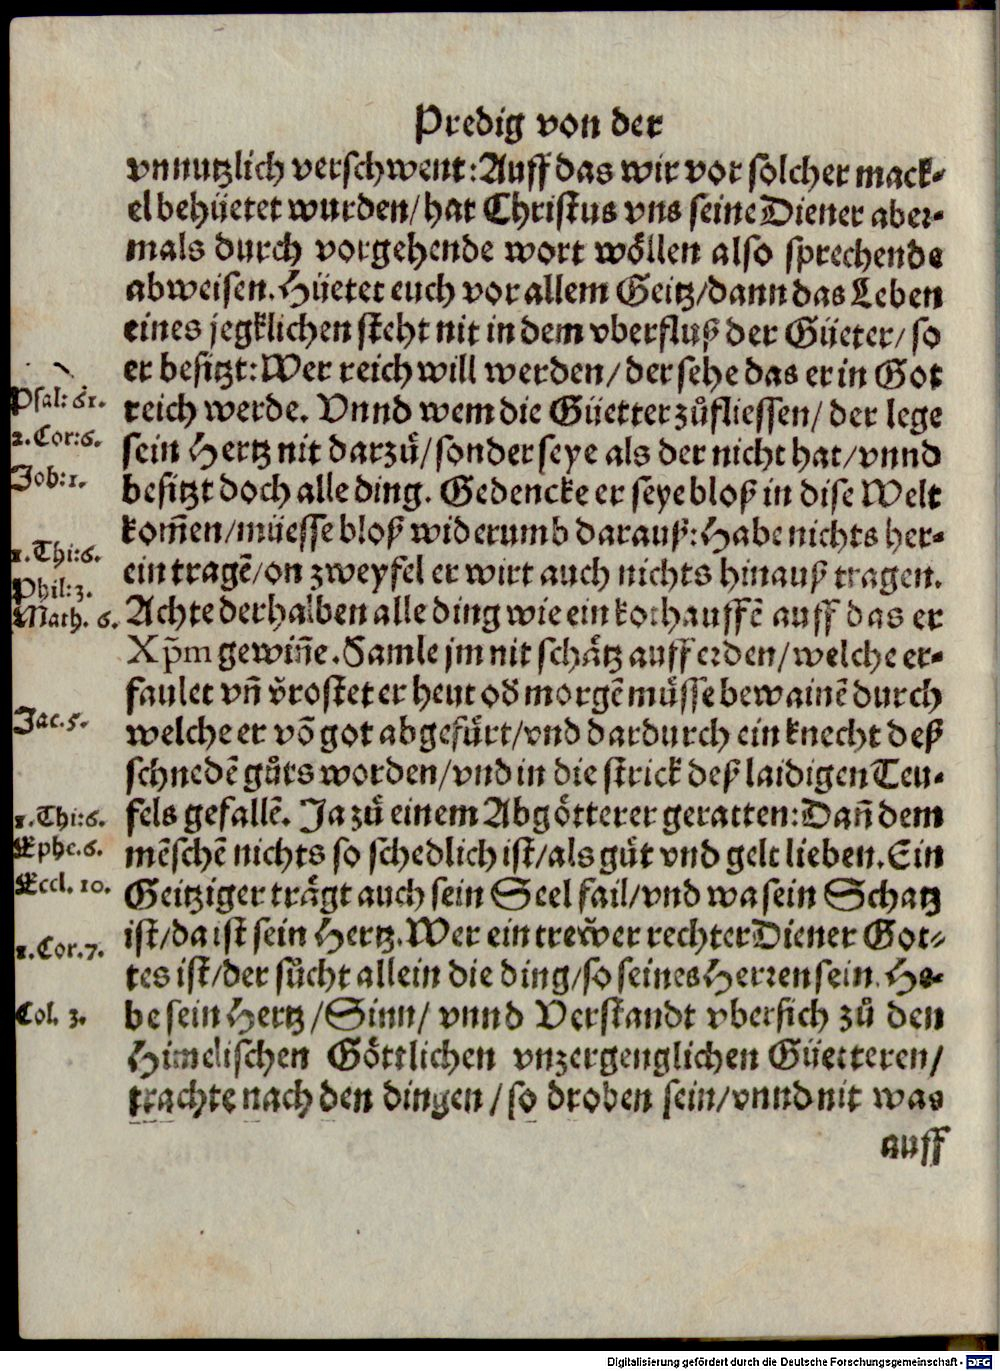 Predig von der
vnnutzlich verschwent: Auff das wir vor solcher mack-
el behüetet wurden/ hat Christus vns seine Diener aber-
mals durch vorgehende wort wöllen also sprechende
abweisen. Hüetet euch vor allem Geitz/ dann das Leben
eines jegklichen steht nit in dem vberfluß der Güeter/ so
er besitzt: Wer reich will werden/ der sehe das er in Got
Psal: 61.
reich werde. Vnnd wem die Güetter zůfliessen/ der lege
2. Cor: 6.
sein Hertz nit darzů/ sonder seye als der nicht hat/ vnnd
Job: 1.
besitzt doch alle ding. Gedencke er seye bloß in dise Welt
kom̃en/ müesse bloß widerumb darauß: Habe nichts her-
1. Thi: 6.
ein tragẽ/ on zweyfel er wirt auch nichts hinauß tragen.
Phil: 3.
Math. 6.
Achte derhalben alle ding wie ein kothauffẽ auff das er
Xp̃m gewiñe. Samle jm nit schätz auff erden/ welche er-
faulet vñ v̆rostet er heut od̆ morgẽ müsse bewainẽ durch
Jac. 5.
welche er võ got abgefürt/ vnd dardurch ein knecht deß
schnedẽ gůts worden/ vnd in die strick deß laidigen Teu-
1. Thi: 6.
fels gefallẽ. Ja zů einem Abgötterer geratten: Dañ dem
Ephe. 6.
mẽschẽ nichts so schedlich ist/ als gůt vnd gelt lieben. Ein
Eccl. 10.
Geitziger trägt auch sein Seel fail/ vnd wa sein Schatz
1. Cor. 7.
ist/ da ist sein Hertz. Wer ein trewer rechter Diener Got-
tes ist/ der sůcht allein die ding/ so seines Herren sein. He-
Col. 3.
be sein Hertz/ Sinn/ vnnd Verstandt vbersich zů den
Him̃elischen Göttlichen vnzergenglichen Güetteren/
trachte nach den dingen/ so droben sein/ vnnd nit was
auff
Digitalisierung gefördert durch die Deutsche Forschungsgemeinschaft - DFG